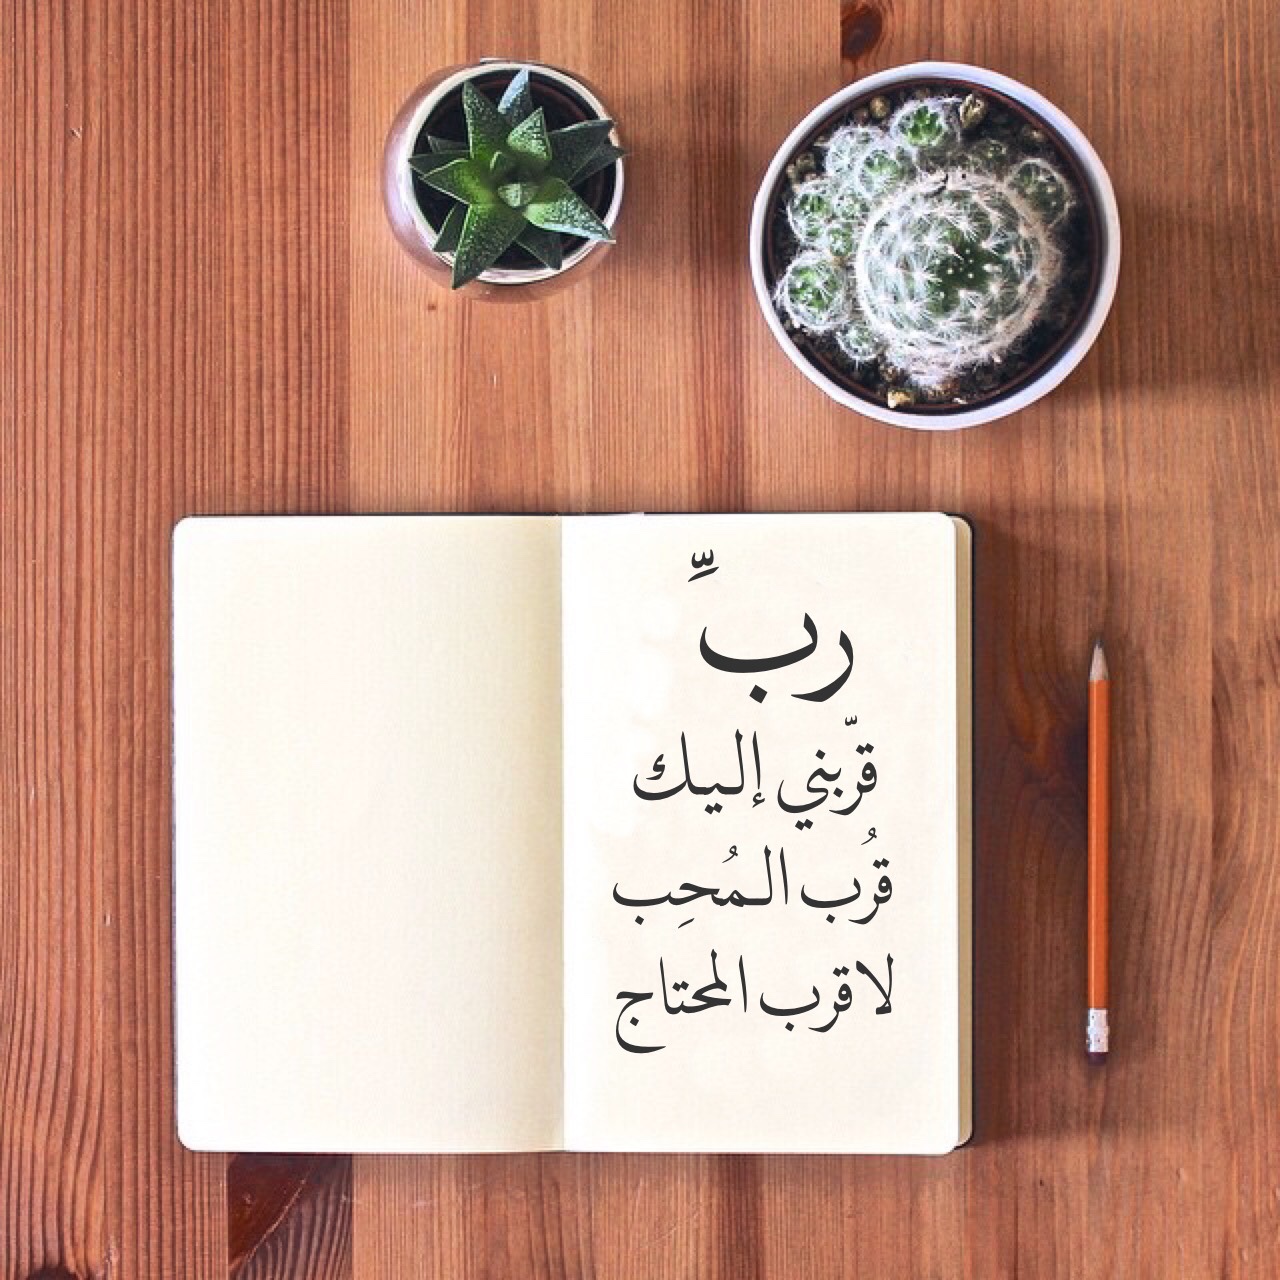 ربِّ
قرّبني إليك
قرُب المُحِب
لا قرب المحتاج